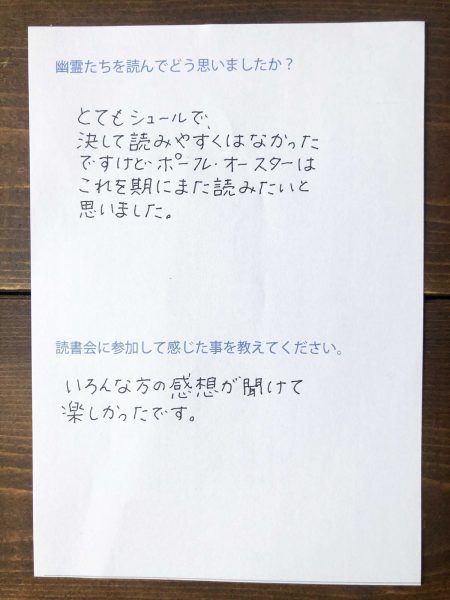 幽霊たちを読んでどう思いましたか？
とてもシュールで、
決して読みやすくはなかった
ですけど ポール・オースターは
これを期にまた読みたいと
思いました。
読書会に参加して感じた事を教えてください。
いろんな方の感想が聞けて
楽しかったです。